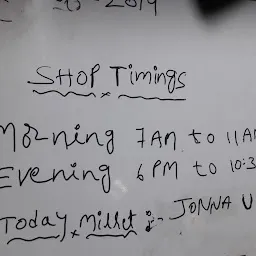 2019
SHOP Timings
Morning 7AM to 11A
Evening 6PM to 10:3
Today Millet :- JONNA U